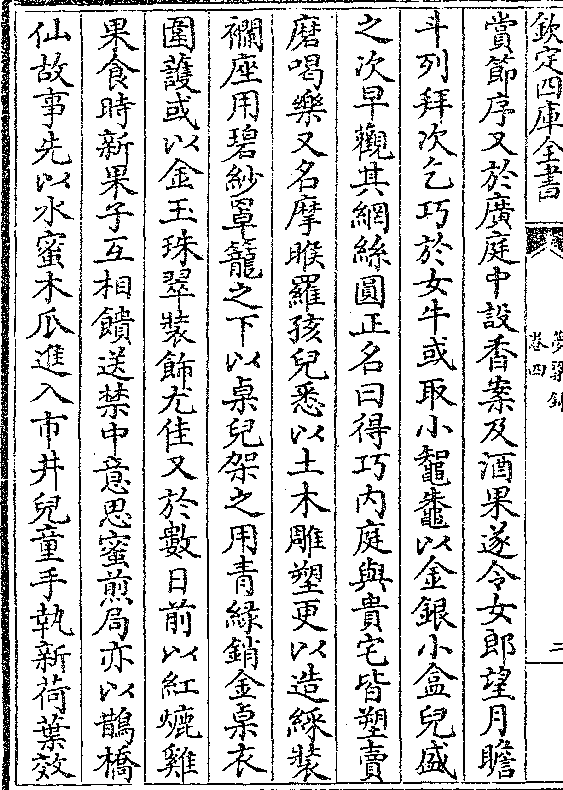 欽定四庫全書
夢粱錄
卷四
二
賞節序又於廣庭中設香案及酒果遂令女郎望月瞻
斗列拜次乞巧於女牛或取小鼅鼄以金銀小盒兒盛
之次早觀其網絲圓正名曰得巧内庭與貴宅皆塑賣
磨喝樂又名摩睺羅孩兒悉以土木雕塑更以造綵裝
襴座用碧紗罩籠之下以桌兒架之用青綠銷金桌衣
圍護或以金玉珠翠裝飾尤佳又於數日前以紅爊雞
果食時新果子互相饋送禁中意思蜜煎局亦以鵲橋
仙故事先以水蜜木瓜進入市井兒童手執新荷葉效